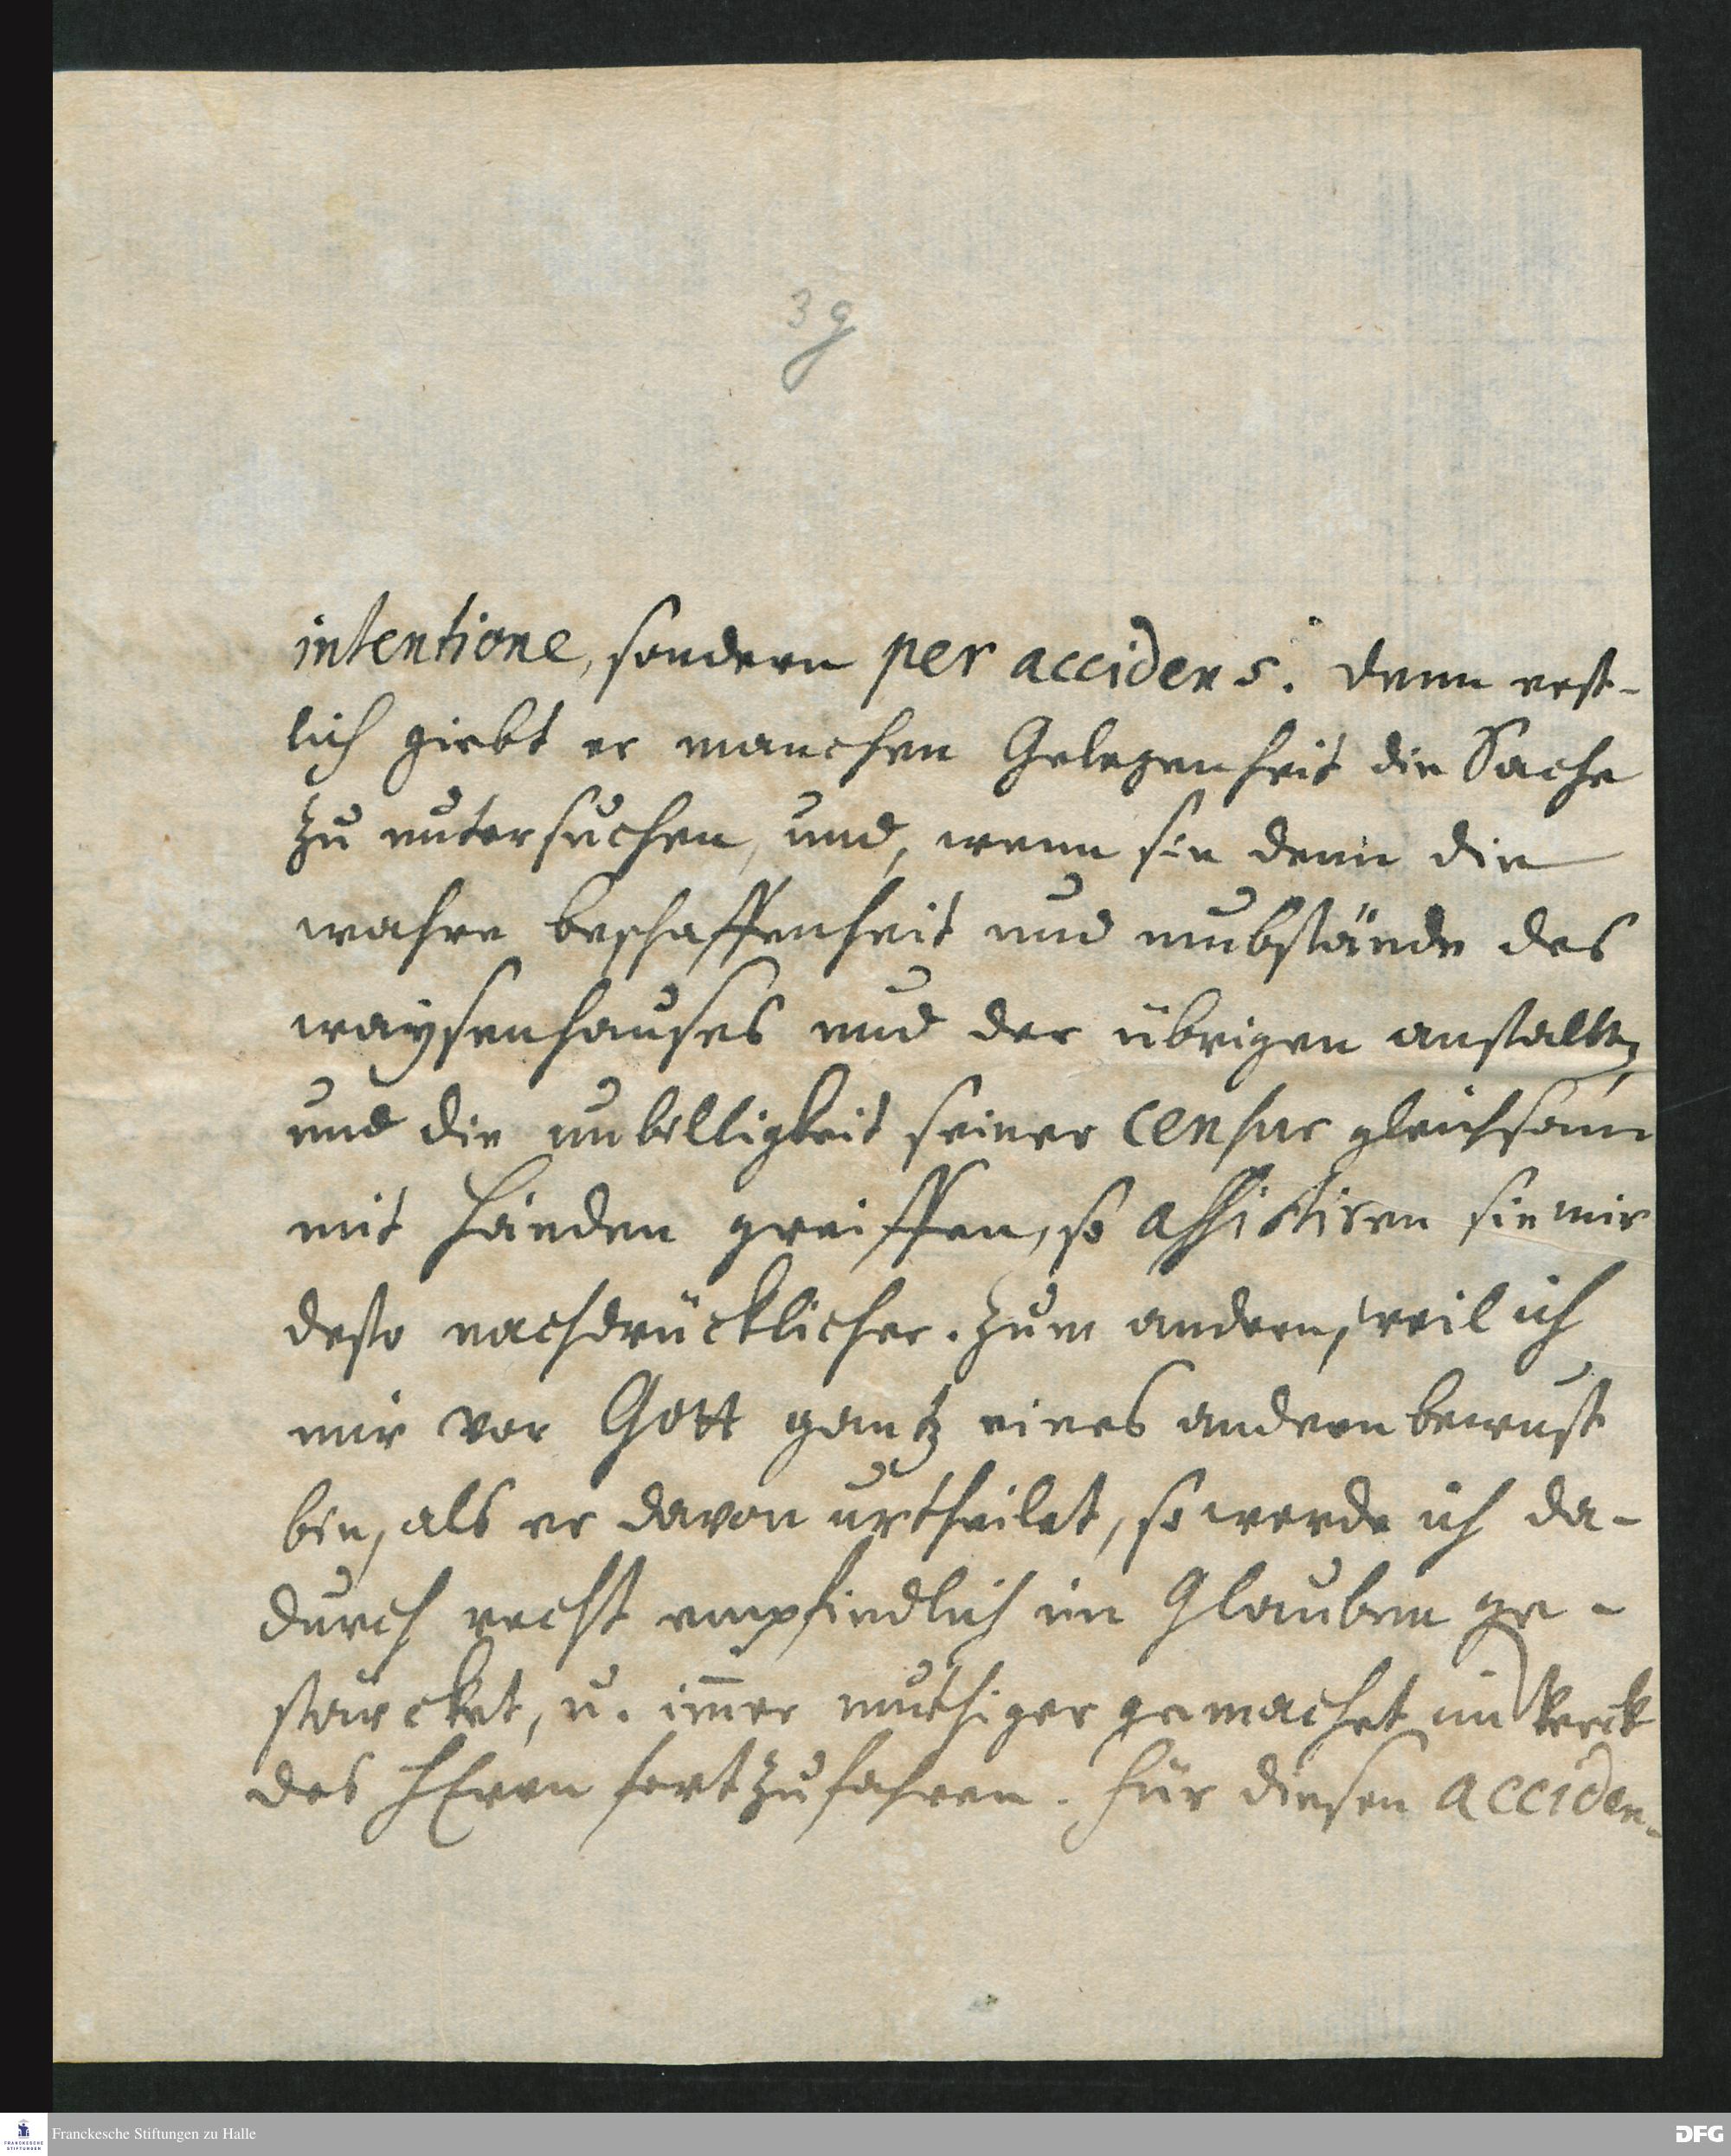 3g
intentione, sondern per accidens. Denn erst-
lich giebt er manchen Gelegenheit die Sache
zu untersuchen, und, wenn sie denn die
wahre beschaffenheit und umbstände des
waysenhauses und der übrigen anstalten
und die unbilligkeit seiner censur gleichsam
mit Händen greiffen, so assistiren sie mir
desto nachdrücklicher. Zum andern, weil ich
mir vor Gott gantz eines andern bewust
bin, als er davon urtheilet, so werde ich da-
durch recht empfindlich im Glauben ge-
stärcket, u. im̅er muthiger gemachet im Werck
des HErrn fortzufahren. Für diesen acciden-
Franckesche Stiftungen zu Halle
FRANCKESCHE
STIFTUNGEN
DFG